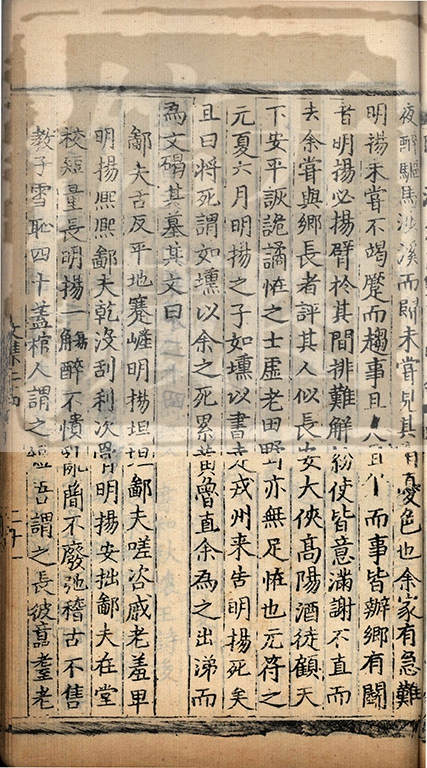 夜醉驅馬涉溪而歸未嘗見其有憂色也余家有急難
明揚未嘗不竭蹷而趨事且
而事皆辦鄉有鬭
者明揚必揚臂於其間排難解紛使皆意滿謝不直而
去余嘗與鄉長者評其人似長安大俠高陽酒徒顧天
下安平詼詭譎怪之士虛老田野亦無足怪也元符之
元夏六月明揚之子如壎以書走戎州来告明揚死矣
且曰將死謂如壎以余之死累黃魯直余為之出涕而
為文碣其墓其文曰
鄙夫舌反平地蹇嵯明揚坦坦鄙夫嗟咨戚老羞甲
明揚熙熙鄙夫乾没刮利次骨明揚安拙鄙夫在堂
校短量長明揚一觴醉不憒亂簡不廢弛稽古不售
教子雪恥四十蓋棺人謂之
吾謂之長彼
耋老
文集二十四
二十一